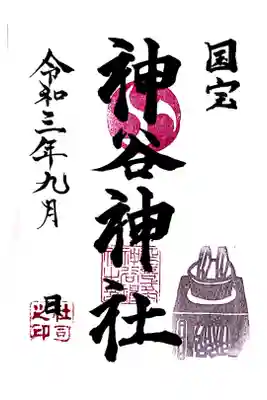 国宝
神谷神社
令和三年九月 日
社司之印